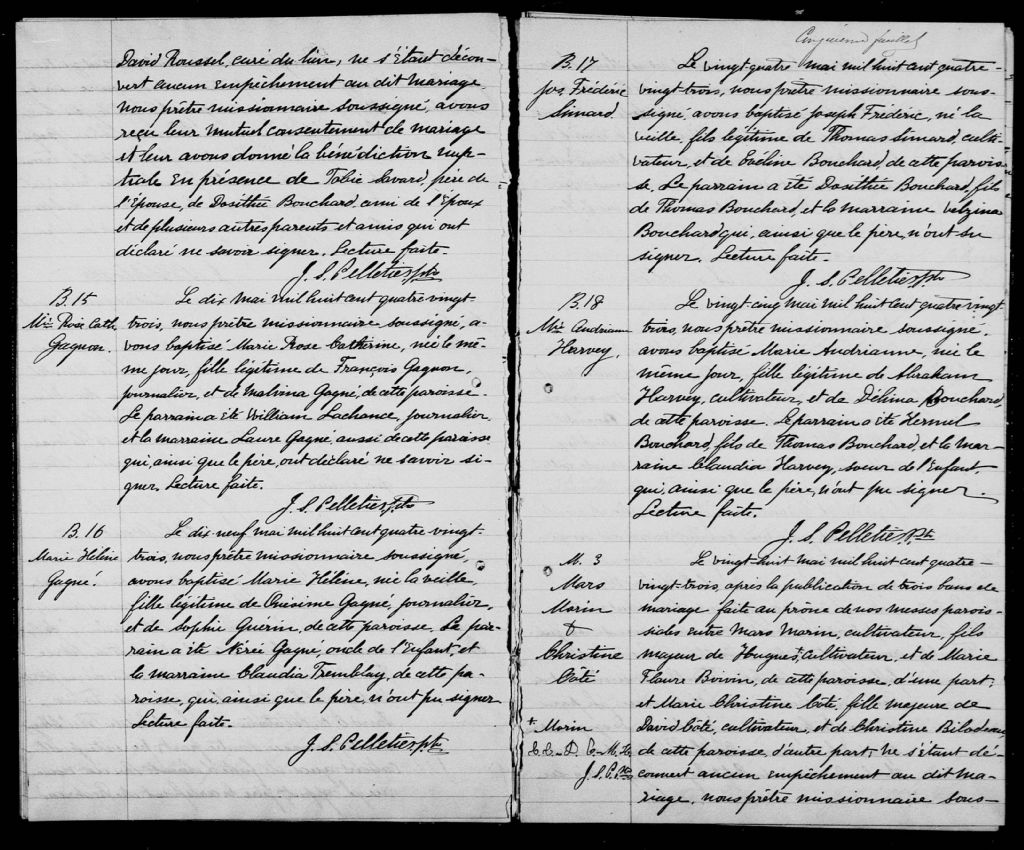 David Roussel, curé du lieu, ne s'étant décou-
vert aucun empêchement au dit mariage
nous prêtre missionnaire soussigné, avons
reçu leur mutuel consentement de mariage
et leur avons donné la bénédiction nup-
tiale en présence de Tobie Savard, père de
l'Epouse, de Dosithée Bouchard ami de l'Epoux
et de plusieurs autres parents et amis qui ont
déclaré ne savoir signer. Lecture faite.
J. S. Pelletier ptr
B. 15
Mie Rose Cath.
Gagnon.
Le dix mai mil huit cent quatre vingt-
trois, nous prêtre missionnaire soussigné, a-
vons baptisé Marie Rose Catherine, née le mê-
me jour, fille légitime de François Gagnon,
journalier, et de Malvina Gagné, de cette paroisse.
Le parrain a été William Lachance, journalier
et la marraine Laure Gagné, aussi de cette paroisse
qui, ainsi que le père, ont déclaré ne savoir si-
gner. Lecture faite.
J. S. Pelletier ptr
B. 16
Marie Hélène
Gagné.
Le dix neuf mai mil huit cent quatre vingt-
trois, nous prêtre missionnaire soussigné,
avons baptisé Marie Hélène, née la veille,
fille légitime de Onisime Gagné, journalier,
et de Sophie Guérin, de cette paroisse. Le par-
rain a été Nérée Gagné, oncle de l'Enfant, et
la marraine Claudia Tremblay, de cette pa-
roisse, qui, ainsi que le père, n'ont pu signer
Lecture faite.
J. S. Pelletier ptr
Cinquième feuillet
B. 17
Jos. Frédéric
Simard.
Le vingt quatre mai mil huit cent quatre-
vingt-trois, nous prêtre missionnaire sous-
signé, avons baptisé Joseph Frédéric, né la
veille, fils légitime de Thomas Simard, culti-
vateur, et de Eveline Bouchard, de cette parois-
se. Le parrain a été Dosithée Bouchard, fils
de Thomas Bouchard, et la marraine Velzina
Bouchard qui, ainsi que le père, n'ont su
signer. Lecture faite.
J. S. Pelletier ptr
B. 18
Mie Andrianne
Harvey.
Le vingt cinq mai mil huit cent quatre vingt
trois, nous prêtre missionnaire soussigné,
avons baptisé Marie Andrianne, née le
même jour, fille légitime de Abraham
Harvey, cultivateur, et de Délima Bouchard,
de cette paroisse. Le parrain a été Hermel
Bouchard, fils de Thomas Bouchard, et la mar-
raine Claudia Harvey, soeur de l'Enfant,
qui, ainsi que le père, n'ont pu signer.
Lecture faite.
J. S. Pelletier Ptr
M. 3
Mars
Morin
&
Christine
Côté
Le vingt-huit mai mil huit cent quatre-
vingt-trois, après la publication de trois bans de
mariage faite au prône de nos messes parois-
siales entre Mars Morin, cultivateur, fils
majeur de Hugues + cultivateur, et de Marie
Flavie Boivin, de cette paroisse, d'une part;
et Marie Christine Côté, fille majeure de
David Côté, cultivateur, et de Christine Bilodeau,
de cette paroisse, d'autre part; ne s'étant dé-
couvert aucun empêchement au dit ma-
riage, nous prêtre missionnaire sous-
+ Morin
J. S. P. ptr